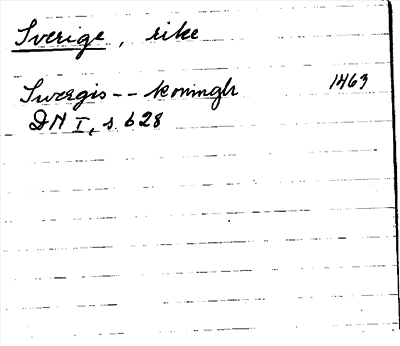 Sverige, rike
Swergis -- koninghr 1463
DN I, s. 628